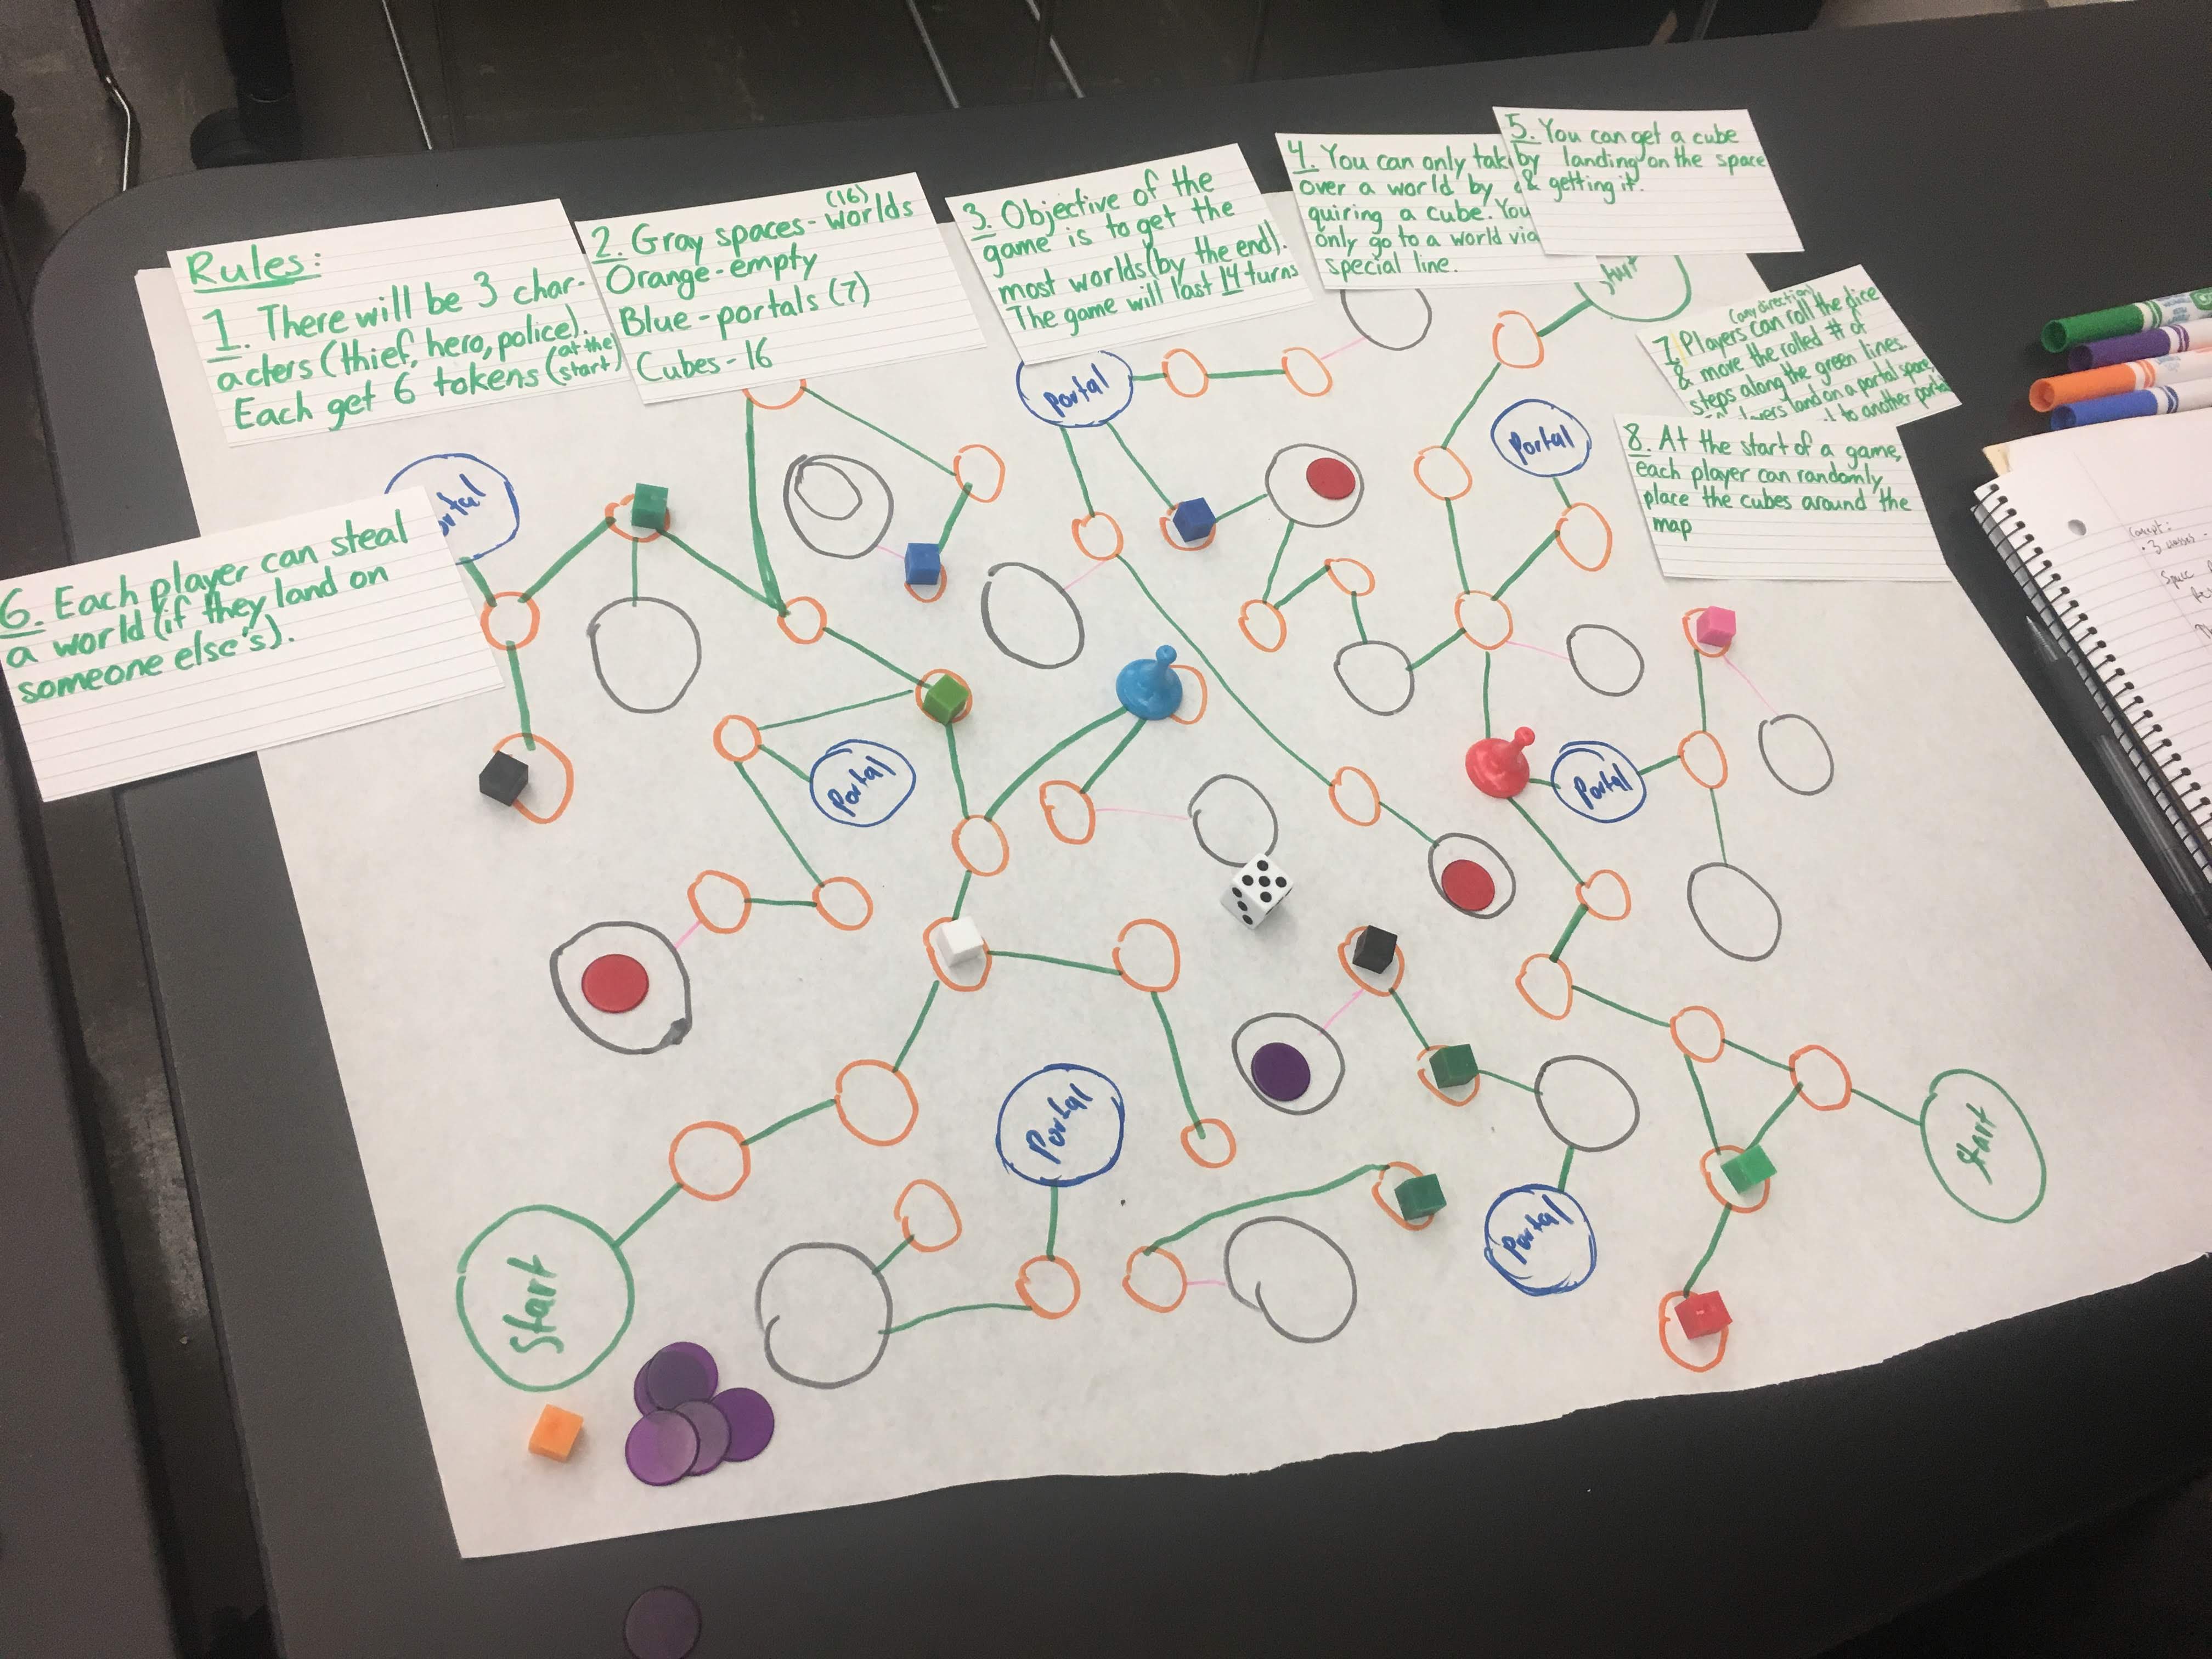 Rules:
1. There will be 3 char-
acters (thief, hero, police).
Each get 6 tokens (at the start)
2. Gray spaces - worlds (16)
Orange - empty
Blue - portals (7)
Cubes - 16
3. Objective of the
game is to get the
most worlds (by the end).
The game will last 14 turns
4. You can only take
over a world by
quiring a cube. You
only go to a world via
special line.
5. You can get a cube
by landing on the space
& getting it.
6. Each player can steal
a world (if they land on
someone else's).
7. Players can roll the dice
(any direction)
& move the rolled # of
steps along the green lines.
land on a portal space,
to another portal
8. At the start of a game,
each player can randomly
place the cubes around the
map
Start
Portal
Portal
Portal
Portal
Portal
Portal
Start
Concept: